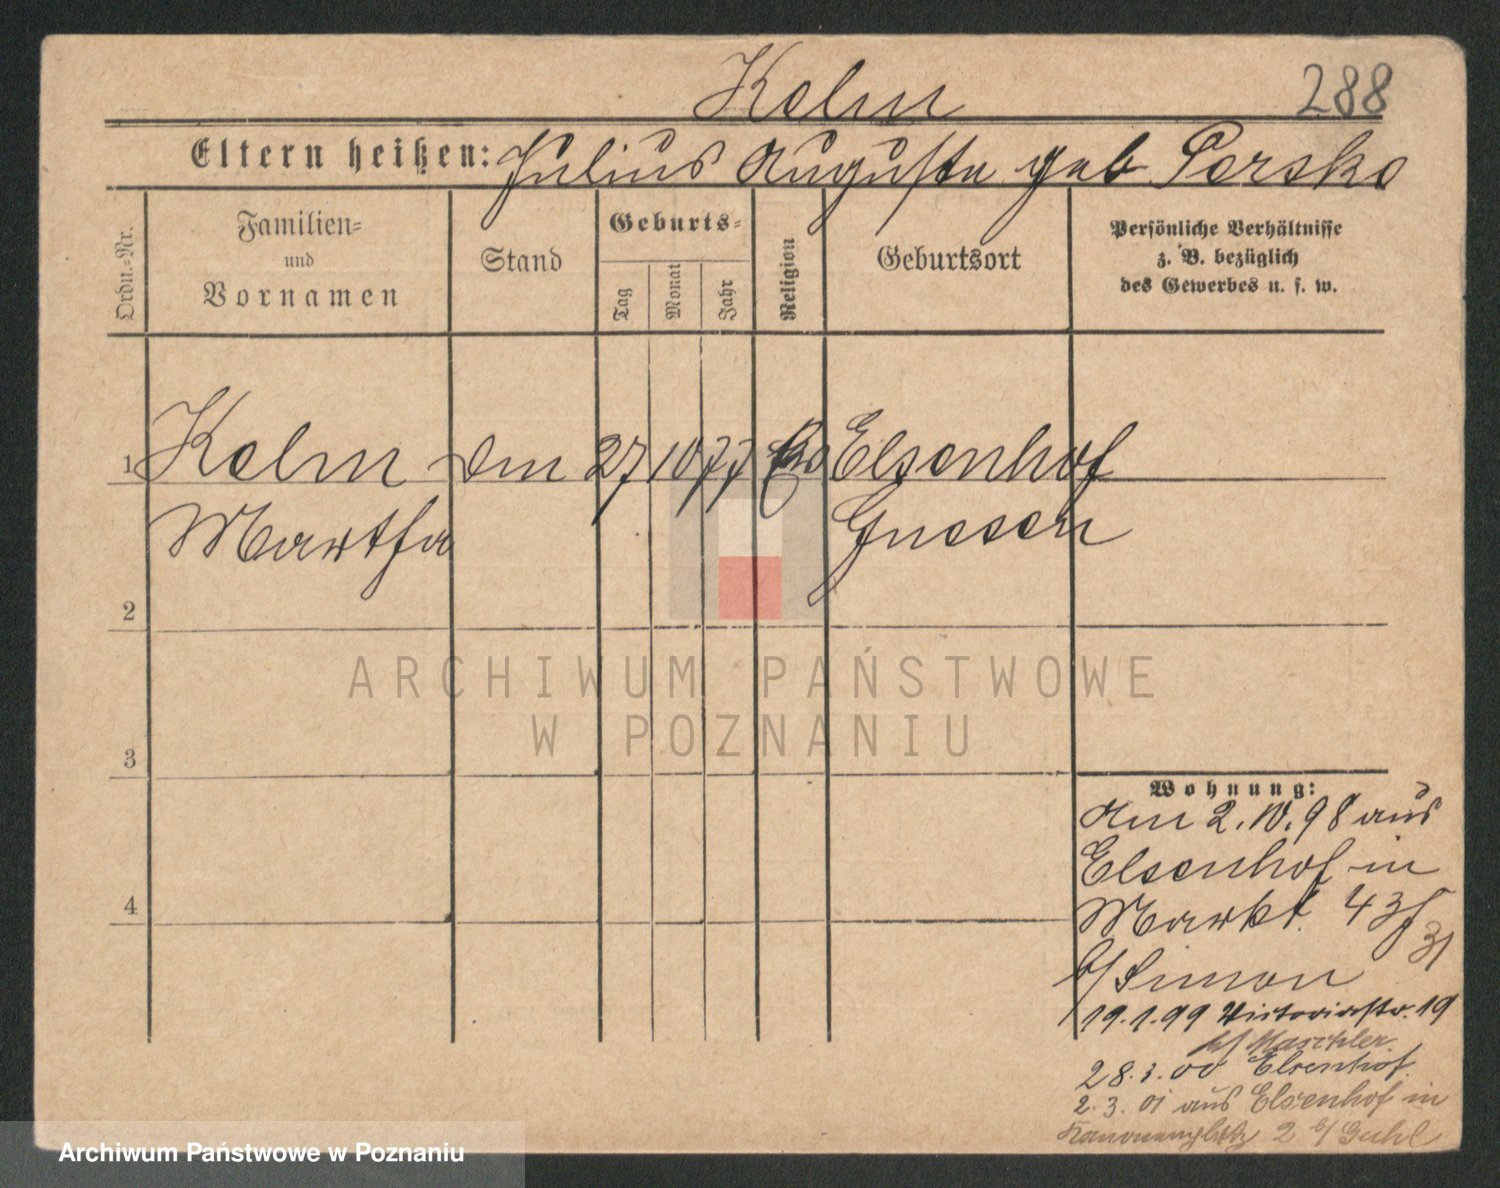 Kelm
288
Eltern heißen: Julius Auguste geb Perske
Ordn.-Nr.
Familien-
und
Vornamen
Stand
Geburts-
Tag
Monat
Jahr
Religion
Geburtsort
Persönliche Verhältnisse
z. B. bezüglich
des Gewerbes u. s. w.
1 Kelm 27 10 77 Elsenhof
Martha Gnesen
2
3
4
Wohnung:
Am 2.10.98 aus
Elsenhof in
Markt 43
31
b/ Simon
19.1.99 Victoriastr. 19
b/ Maschler
28.3.00 Elsenhof
2.3.01 aus Elsenhof in
2 b/
ARCHIWUM PAŃSTWOWE
W POZNANIU
Archiwum Państwowe w Poznaniu